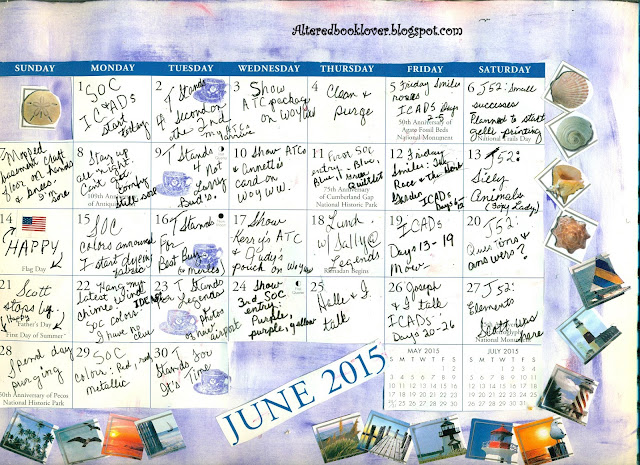 Alteredbooklover.blogspot.com
SUNDAY MONDAY TUESDAY WEDNESDAY THURSDAY FRIDAY SATURDAY
1 SOC
IC&ADs
start
today
2 T Stands
4 Second on
the 2nd
my ATCs
3 Show
ATC package
on WOYWW
4 Clean &
purge
5 Friday Smiles
roses
ICADS Days
2-5
50th Anniversary of
Agate Fossil Beds
National Monument
6 T52: Small
successes
Planned to start
gelli printing
National Trails Day
7 Mopped
basement craft
floor on hands
& knees.
8 Stay up
all night.
Can't get
comfy
still SOC
9 T Stands
4 Not
Bud's.
10 Show ATCs
& Annette's
card on
WOYWW.
11 First SOC
entry: Blue,
Blue,
75th Anniversary
of Cumberland Gap
National Historic Park
12 Friday
Smiles:
Race & the
ICADs
13 T52:
Silly
Animals
(Copy Lady)
14
HAPPY
Flag Day
15 SOC
colors announced
I start dyeing
fabric
16 T Stands
For
Best Buds
17 Show
Kerry's ATC
& Judy's
pouch on WOYWW
18 Lunch
w/ Sally @
Legends
Ramadan Begins
19
ICADs
Days 13-19
Mow
20 T52:
Questions
and
answers?
21 Scott
stops by
HAPPY
Father's Day
First Day of Summer
22 Hang my
latest wind
chimes
SOC Colors.
I have no
clue
23 T Stands
for Legends
photos
of new
airport
24 Show
3rd SOC
entry:
Purple,
purple, yellow
25
Halle & I
talk
26 Joseph
& I talk
ICADS
Days 20-26
27 T52:
Elements
Scott was
here
28
Spend day
purging
50th Anniversary of Pecos
National Historic Park
29 SOC
colors: Red, red
metallic
30 T
Stands For
It's Time
JUNE 2015
MAY 2015
S M T W T F S
JULY 2015
S M T W T F S